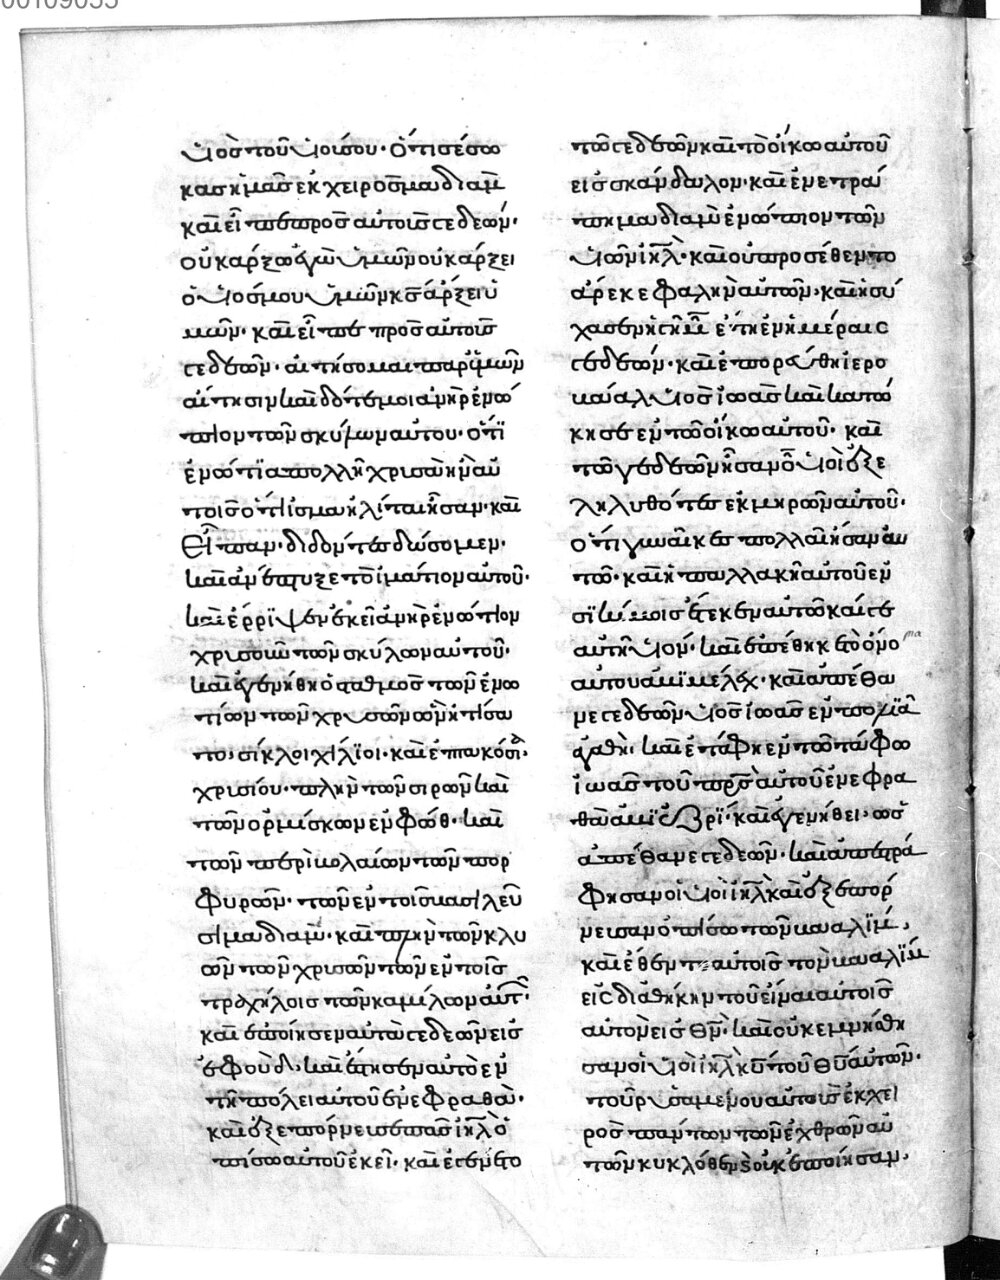 υἱὸσ τοῦ υἱοῦ σου· ὅτι σέσω
κας ἡμᾶσ ἐκ χειρὸσ μαδιάμ
καὶ εἶπεν πρὸσ αὐτοὺσ γεδεών·
οὐκ ἄρξω ἐγὼ ὑμῶν οὐκ ἄρξει
ὁ υἱόσ μου ὑμῶν κσ ἄρξει ὑ
μῶν· καὶ εἶπεν πρὸσ αὐτοὺσ
γεδεών· αἰτήσομαι παρ' ὑμῶν
αἴτησιν καὶ δότε μοι ἀνὴρ ἐνώ
τιον τῶν σκύλων αὐτοῦ· ὅτι
ἐνώτια πολλὰ χρυσᾶ ἦν αὐ
τοῖσ ὅτι ἰσμαηλίται ἦσαν· καὶ
εἶπαν· διδόντεσ δώσομεν·
καὶ ἀνέπτυξε τὸ ἱμάτιον αὐτοῦ·
καὶ ἔρριψεν ἐκεῖ ἀνὴρ ἐνώτιον
χρυσοῦν τῶν σκύλων αὐτοῦ·
καὶ ἐγενήθη ὁ σταθμὸσ τῶν ἐνω
τίων τῶν χρυσῶν ὧν ᾐτήσα
το, σίκλοι χίλϊοι· καὶ ἑπτακόσι·
χρυσίου· πλὴν τῶν σιρώνων καὶ
τῶν ὁρμίσκων ἐνφώθ· καὶ
τῶν περιβολαίων τῶν πορ
φυρῶν· τῶν ἐν τοῖσ βασιλεῦ
σι μαδιάμ· καὶ πλὴν τῶν κλυ
ῶν τῶν χρυσῶν τῶν ἐν τοῖσ
τραχήλοισ τῶν καμήλων αὐτ·
καὶ ἐποίησεν αὐτὸ γεδεὼν εἰσ
ἐφούδ, καὶ ἔστησεν αὐτὸ ἐν
τῇ πόλει αὐτοῦ ἐν ἐφραθά·
καὶ ἐξεπόρνευσε πᾶσ ἰηλ ὀ
πίσω αὐτοῦ ἐκεῖ· καὶ ἐγένετο
τῶ γεδεὼν καὶ τῶ οἴκω αὐτοῦ
εἰσ σκάνδαλον· καὶ ἐνετρά
πη μαδιὰμ ἐνώπιον τῶν
υἱῶν ἰηλ· καὶ οὐ προσέθεντο
ἆραι κεφαλὴν αὐτῶν, καὶ ἡσύ
χασεν ἡ γῆ μ ἔτη ἐν ἡμέραισ
γεδεών· καὶ ἐπορεύθη ἱερο
βάαλ υἱὸσ ἰωὰσ καὶ κατώ
κησεν ἐν τῶ οἴκω αὐτοῦ· καὶ
τῶ γεδεὼν ἦσαν ο υἱοὶ ἐξε
ληλυθότεσ ἐκ μηρῶν αὐτοῦ·
ὅτι γυναῖκεσ πολλαὶ ἦσαν αυ
τῶ· καὶ ἡ παλλακὴ αὐτοῦ ἐν
σικίμοισ ἔτεκεν αὐτῶ καίγε
αὐτὴ υἱόν· καὶ ἐπέθηκε τὸ ὄνομα
αὐτοῦ ἀμϊμέλεχ· καὶ ἀπέθα
νε γεδεὼν υἱὸσ ἰωὰσ ἐν πολιᾶ
ἀγαθῆ· καὶ ἐτάφη ἐν τῶ τάφω
ἰωὰσ τοῦ πρσ αὐτοῦ ἐν ἐφρα
θὰ ἀμὶ ἐζρί· καὶ ἐγενήθει, ὡσ
ἀπέθανε γεδεών· καὶ ἀπεστρά
φησαν οἱ υἱοὶ ἰηλ καὶ ἐξεπόρ
νευσαν ὀπίσω τῶν βααλίμ,
καὶ ἔθεντο αὐτοῖσ τὸν βααλϊμ
εἰσ διαθήκην τοῦ εἶναι αὐτοῖσ
αὐτὸν εἰσ θν· καὶ οὐκ ἐμνήσθη
σαν οἱ υἱοὶ ἰηλ κυ τοῦ θυ αὐτῶν·
τοῦ ῥυσαμένου αὐτοὺσ ἐκ χει
ρὸσ πάντων τῶν ἐχθρῶν αὐ
τῶν κυκλόθεν ϗ οὐκ ἐποίησαν,